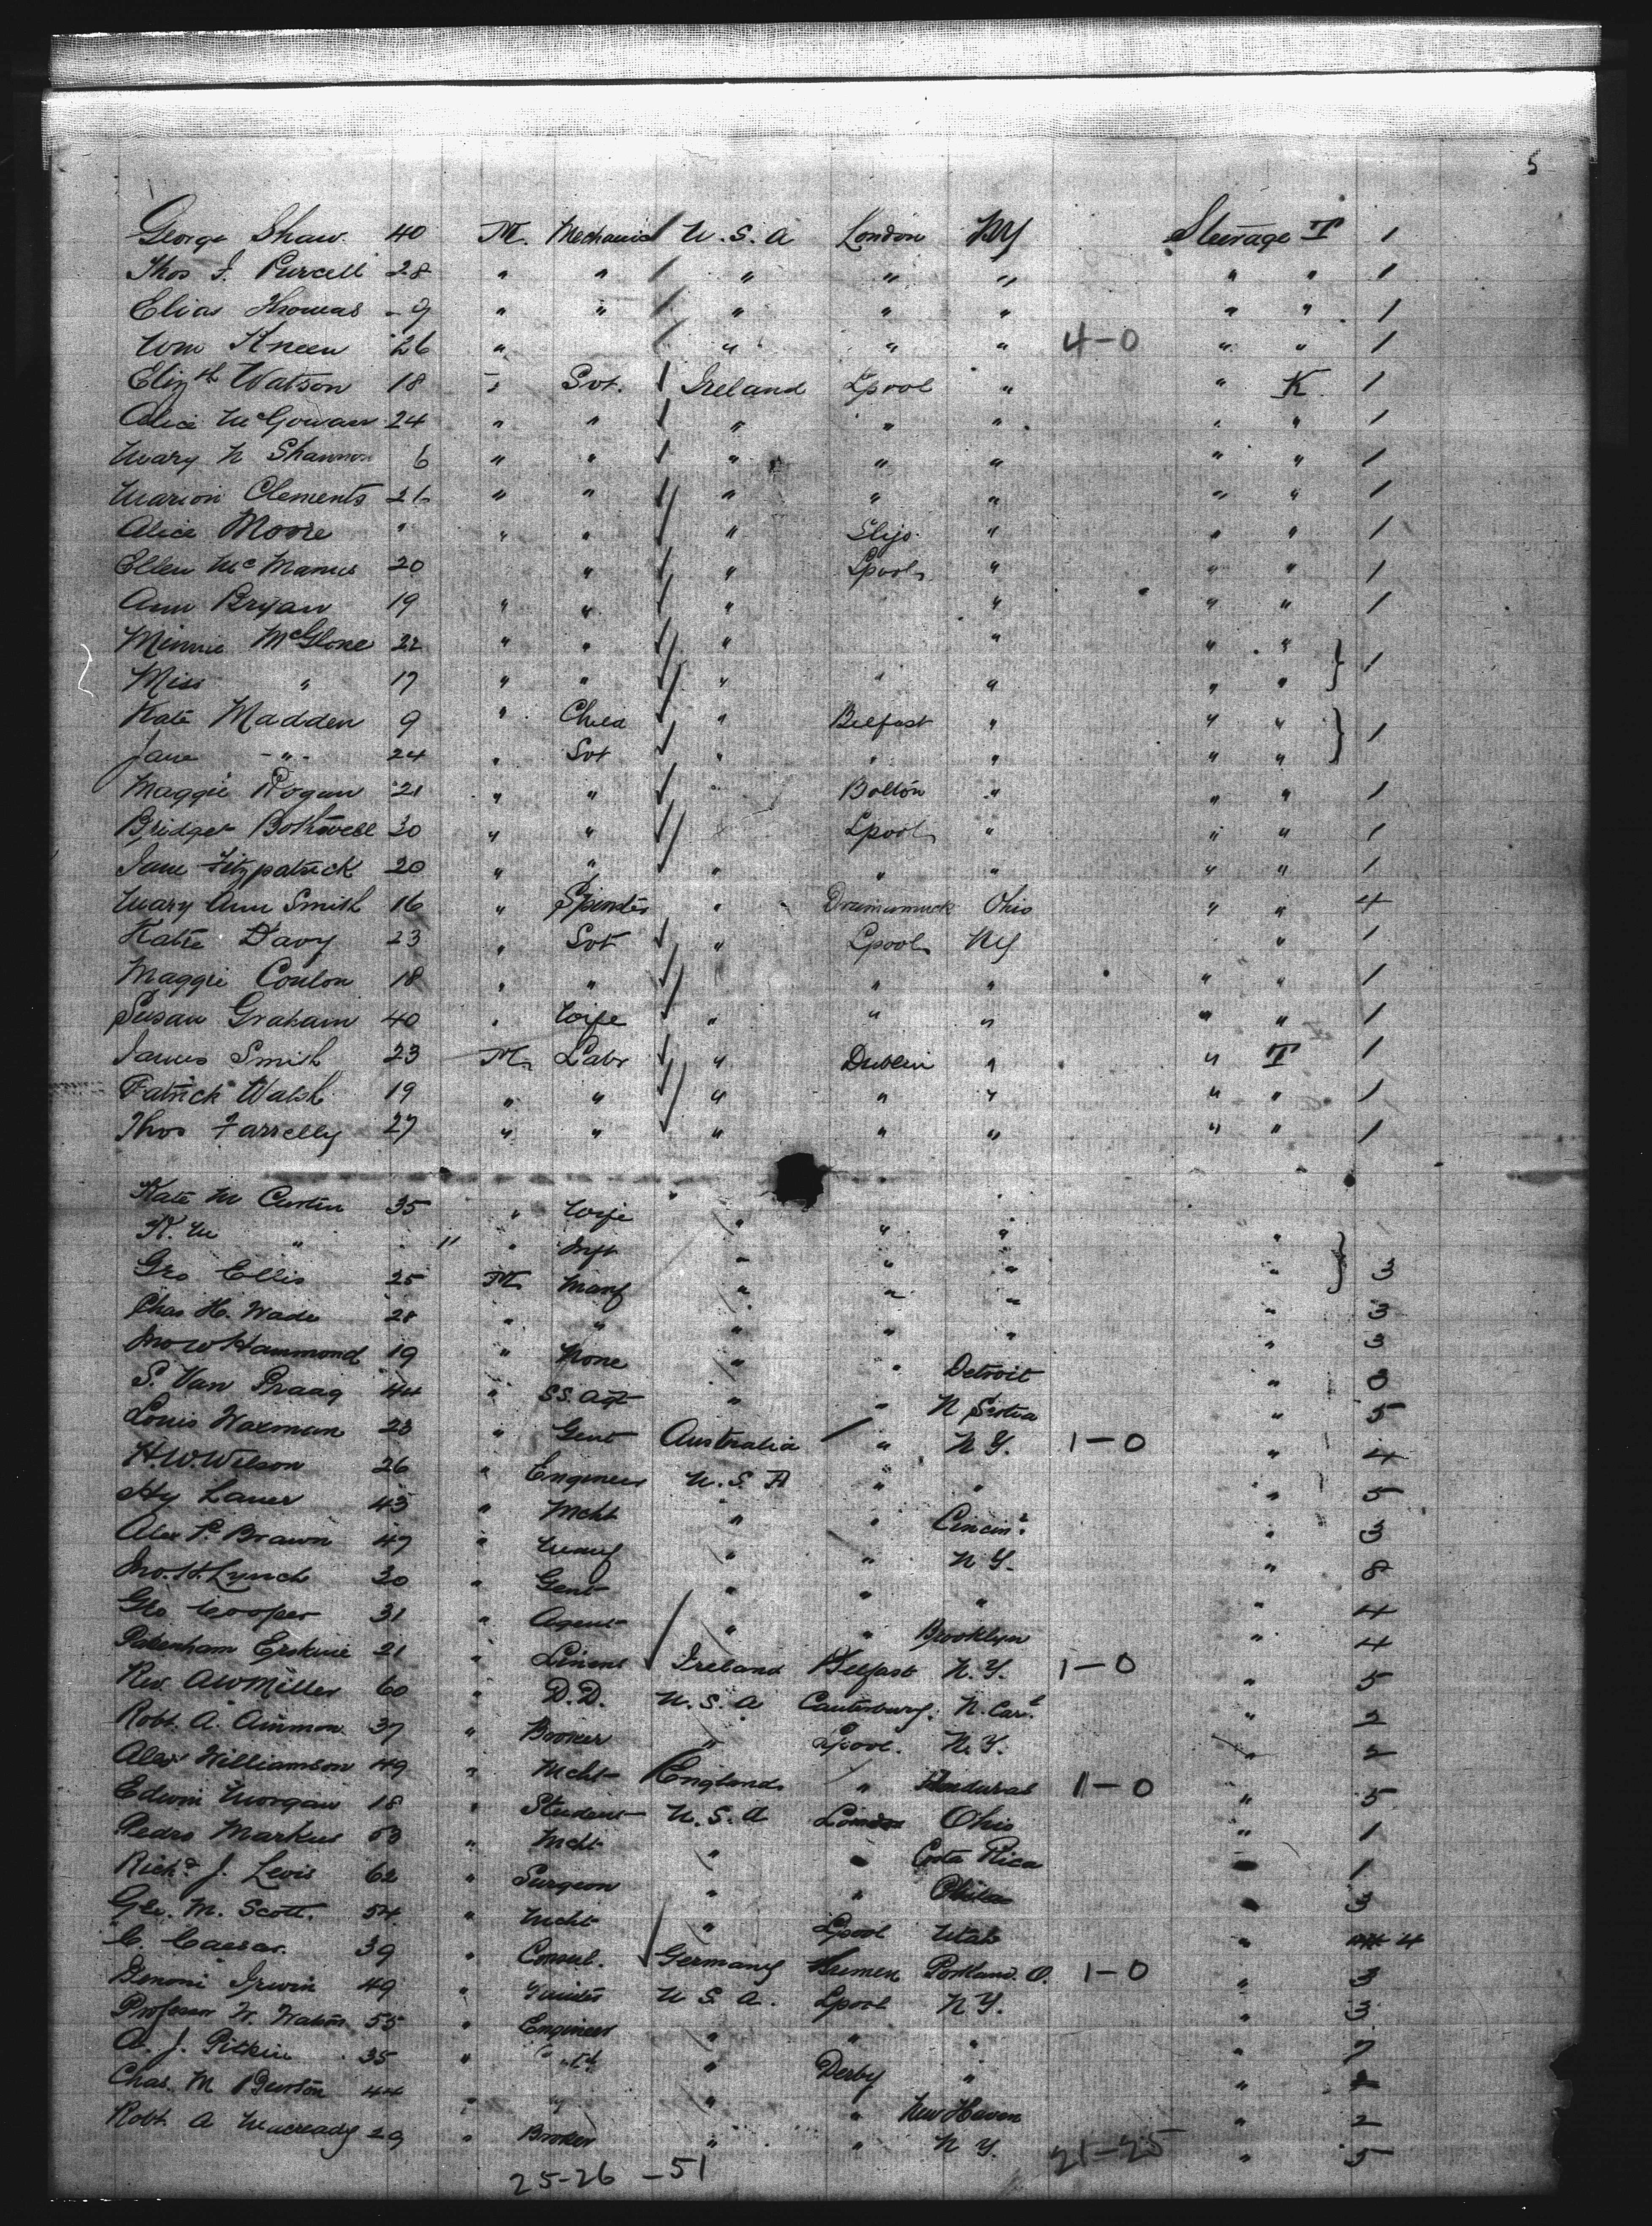 5
George Shaw 40 M. Mechanic / U.S.A London NY Steerage T 1
Thos J. Purcell 28 " " / " " " " " 1
Elias Thomas - 9 " " / " " " " " 1
Wm Kneen 26 " / " " " 4-0 " " 1
Eliz th Watson 18 Svt. Ireland Lpool " " K 1
Alice McGowan 24 " " " " " " " 1
Mary N Shannon 6 " " " " " " " 1
Marion Clements 26 " " " " " " " 1
Alice Moore " " " " Sligo " " " 1
Ellen McManus 20 " " Lpool " " " 1
Ann Bryan 19 " " " " " " 1
Minnie McGlone 22 " " " " " "
Miss " 17 " " " " " " " 1
Kate Madden 9 " Child " Belfast " " "
Jane - " - 24 " Svt " " " " " 1
Maggie Rogan 21 " " " Bolton " " " 1
Bridget Bothwell 30 " " Lpool " " " 1
Jane Fitzpatrick 20 " " " " " " " 1
Mary Ann Smith 16 " " Ohio " " 4
Katie Davy 23 " Svt " Lpool NY " 1
Maggie Conlon 18 " " " " " " 1
Susan Graham 40 " Wife " " " " " 1
James Smith 23 M Labr " Dublin " " T 1
Patrick Walsh 19 " " " " " " " 1
Thos Farrelly 27 " " " " " " " 1
Kate M Curtin 35 " Wife " " " "
K. M " 11 " Inft " " " "
Geo. Ellis 25 M Manf " " " " 3
Chas H. Wade 28 " " " " " " 3
Jno W Hammond 19 " None " " Detroit " 3
S. Van Praag 44 " S.S. Agt " " N Scotia " 5
Louis Waxman 23 " Gent Australia / " N.Y. 1-0 " 4
H.W. Wilson 26 " Engineer U.S.A " " " 5
Hy Lauer 43 " Mcht " " Cincin " 3
Alex P. Brown 47 " Manf " " N.Y. " 8
Jno. H. Lynch 30 " Gent " " " " 4
Geo. Cooper 31 " Agent " " Brooklyn " 4
Pakenham Erskine 21 " Linens Ireland Belfast N.Y. 1-0 " 5
Rev. A W Miller 60 " D.D. U.S.A Canterbury. N. Car. " 2
Robt. A. Ammon 37 " " Lpool. N.Y. " 2
Alex Williamson 49 " Mcht England " Honduras 1-0 " 5
Edwin Morgan 18 " Student U.S.A London Ohio " 1
Pedro Markus 53 " Mcht " " Costa Rica " 1
Richd J. Levis 62 " Surgeon " " Phila " 3
Geo. M. Scott. 54 " Mcht " Lpool Utah " 4
C. Caesar. 39 " Consul. Germany Bremen Portland. O. 1-0 " 3
Benoni Irwin 49 " U.S.A. Lpool N.Y. " 3
Professor W. 55 " Engineer " " " " 7
A. J. Pitkin 35 " " Derby " "
Chas. M Burton 44 " " " " New Haven " 2
Robt. A Macready 29 " Broker " " N.Y. " 5
25-26 - 51 21-25